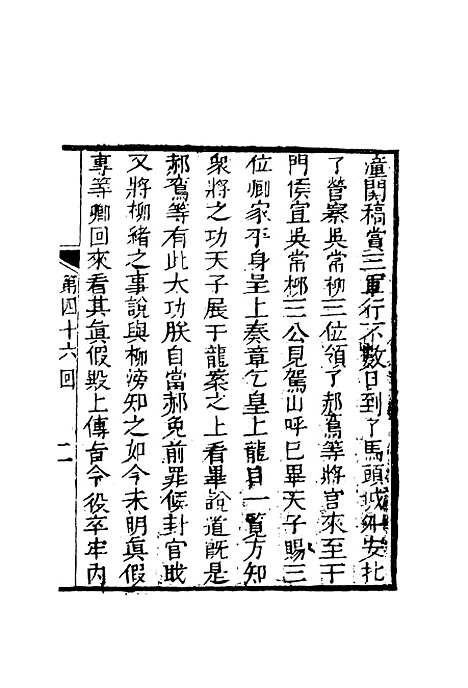 潼関犒賞三軍行不數日到了馬頭城外安扎
了營寨吳常柳三位領了郝鸞等將官來至午
門候宣吳常柳三公見駕山呼已畢天子賜三
位卿家平身呈上奏章乞皇上龍目一覧方知
衆將之功天子展于龍案之上看畢說道既是
郝鸞等有此大功朕自當赦免前罪候封官職
又將柳緒之事說與柳滂知之如今未明眞假
專等卿回來看其眞假殿上傳旨令役卒牢内
第四十六回
二